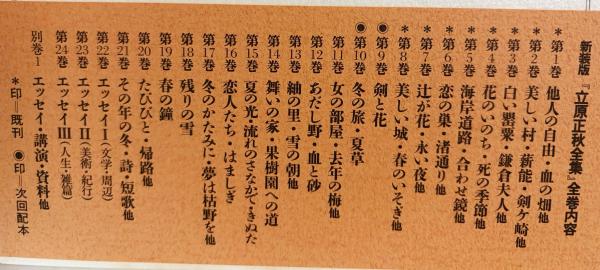 新装版『立原正秋全集』全巻内容
*第1巻 他人の自由・血の畑他
*第2巻 美しい村・薪能・剣ケ崎他
*第3巻 白い罌粟・鎌倉夫人他
*第4巻 花のいのち・死の季節他
*第5巻 海岸道路・合わせ鏡他
*第6巻 恋の巣・渚通り他
*第7巻 辻が花・永い夜他
*第8巻 美しい城・春のいそぎ他
◉第9巻 剣と花
◉第10巻 冬の旅・夏草
第11巻 女の部屋・去年の梅他
第12巻 あだし野・血と砂
第13巻 紬の里・雪の朝他
第14巻 舞いの家・果樹園への道
第15巻 夏の光・流れのさなかで・きぬた
第16巻 恋人たち・はましぎ
第17巻 冬のかたみに・夢は枯野を他
第18巻 残りの雪
第19巻 春の鐘
第20巻 たびびと・帰路他
第21巻 その年の冬・詩・短歌他
第22巻 エッセイⅠ(文学・周辺)
第23巻 エッセイⅡ(美術・紀行)
第24巻 エッセイⅢ(人生・雑篇)
別巻1 エッセイ・講演・資料他
*印=既刊 ◉印=次回配本